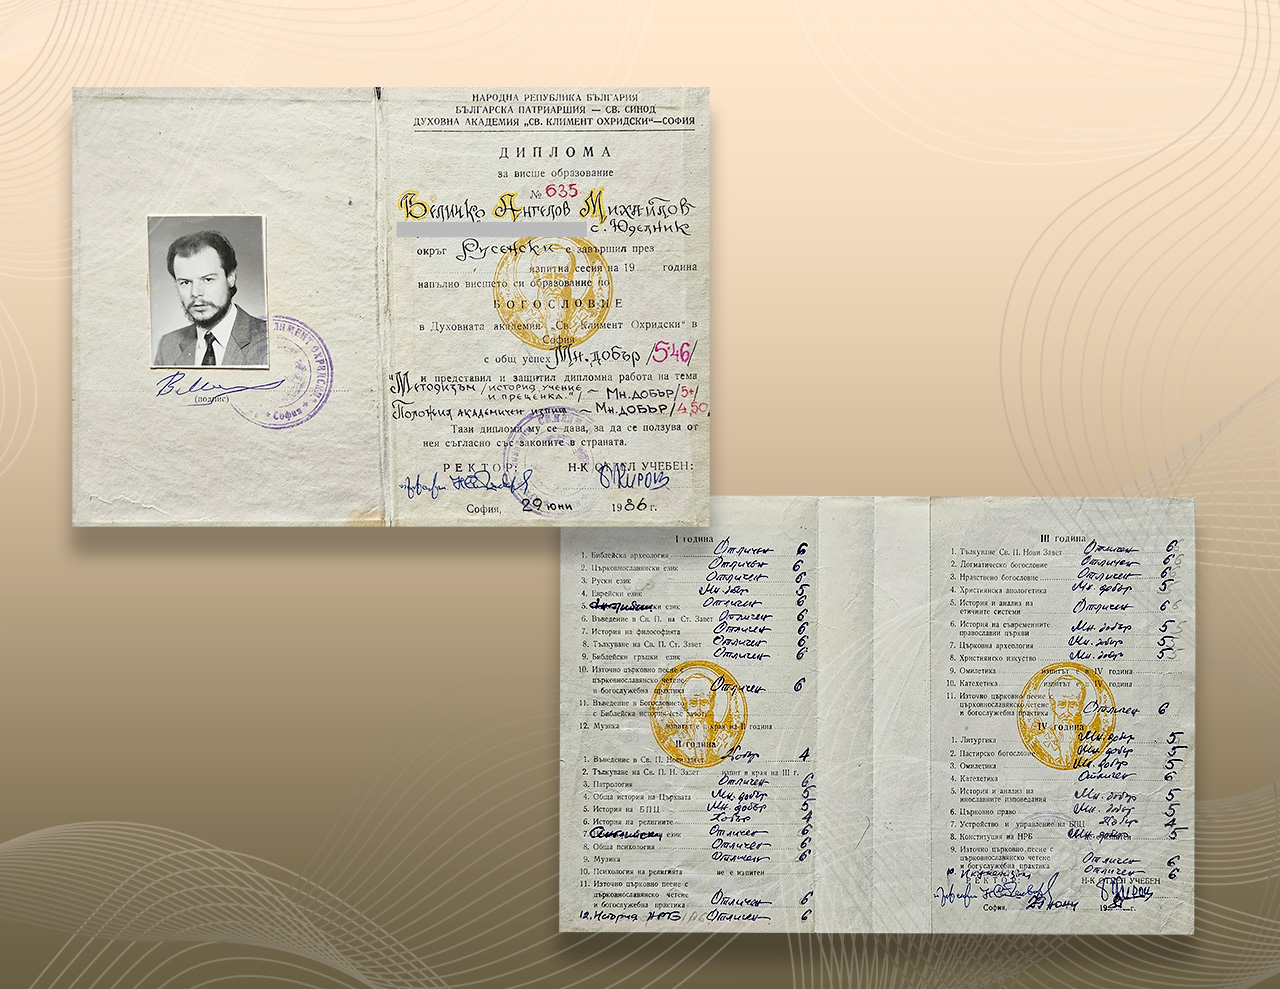 НАРОДНА РЕПУБЛИКА БЪЛГАРИЯ
БЪЛГАРСКА ПАТРИАРШИЯ — СВ. СИНОД
ДУХОВНА АКАДЕМИЯ „СВ. КЛИМЕНТ ОХРИДСКИ“—СОФИЯ
ДИПЛОМА
за висше образование
№ 635
Величко Ангелов Михайлов
с. Юделник
окръг Русенски е завършил през
изпитна сесия на 19 година
напълно висшето си образование по
БОГОСЛОВИЕ
в Духовната академия „Св. Климент Охридски“ в
София
с общ успех Мн. добър /5.46/
и представил и защитил дипломна работа на тема
"Методизъм /история, учение
и преценка."/ ~ Мн. добър /5+/
Положил академичен изпит ~ Мн. добър /4,50
Тази диплома му се дава, за да се ползува от
нея съгласно със законите в страната.
РЕКТОР: Н-К ОТДЕЛ УЧЕБЕН:
София, 29 юни 1986 г.
(подпис)
КЛИМЕНТ ОХРИДСКИ
София
I година
1. Библейска археология Отличен 6
2. Църковнославянски език Отличен 6
3. Руски език Отличен 6
4. Еврейски език Мн. добър 5
5. език Отличен 6
6. Въведение в Св. П. на Ст. Завет Отличен 6
7. История на философията Отличен 6
8. Тълкуване на Св. П. Ст. Завет Отличен 6
9. Библейски гръцки език Отличен 6
10. Източно църковно пеене с
църковнославянско четене
и богослужебна практика Отличен 6
11. Въведение в Богословието
с Библейска история
12. Музика изпитът в края на II година
II година
1. Въведение в Св. П. Нови Завет Добър 4
2. Тълкуване на Св. П. Н. Завет изпит в края на III г.
3. Патрология Отличен 6
4. Обща история на Църквата Мн. добър 5
5. История на БПЦ Мн. добър 5
6. История на религиите Добър 4
7. Английски език Отличен 6
8. Обща психология Отличен 6
9. Музика Отличен 6
10. Психология на религията не е изпитен
11. Източно църковно пеене с
църковнославянско четене
и богослужебна практика Отличен 6
12. История НРБ Отличен 6
III година
1. Тълкуване Св. П. Нови Завет Отличен 6
2. Догматическо богословие Отличен 6
3. Нравствено богословие Отличен 6
4. Християнска апологетика Мн. добър 5
5. История и анализ на
етичните системи Отличен 6
6. История на съвременните
православни църкви Мн. добър 5
7. Църковна археология Мн. добър 5
8. Християнско изкуство Мн. добър 5
9. Омилетика изпитът е в IV година
10. Катехетика изпитът е в IV година
11. Източно църковно пеене
църковнославянско четене
и богослужебна практика Отличен 6
IV година
1. Литургика Мн. добър 5
2. Пастирско богословие Мн. добър 5
3. Омилетика Мн. добър 5
4. Катехетика Отличен 6
5. История и анализ на
инославните изповедания Мн. добър 5
6. Църковно право Мн. добър 5
7. Устройство и управление на БПЦ Добър 4
8. Конституция на НРБ Мн. добър 5
9. Източно църковно пеене с
църковнославянско четене
и богослужебна практика Отличен 6
10. Отличен 6
РЕКТОР: Н-К ОТДЕЛ УЧЕБЕН
София, 29 юни 19 г.